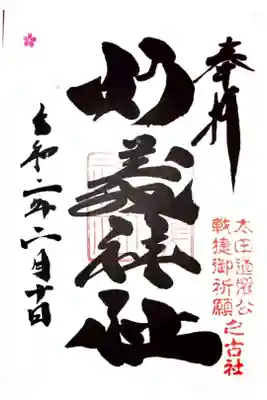 奉拝
太田道灌公
戦捷御祈願之古社
妙義神社
令和二年六月十日